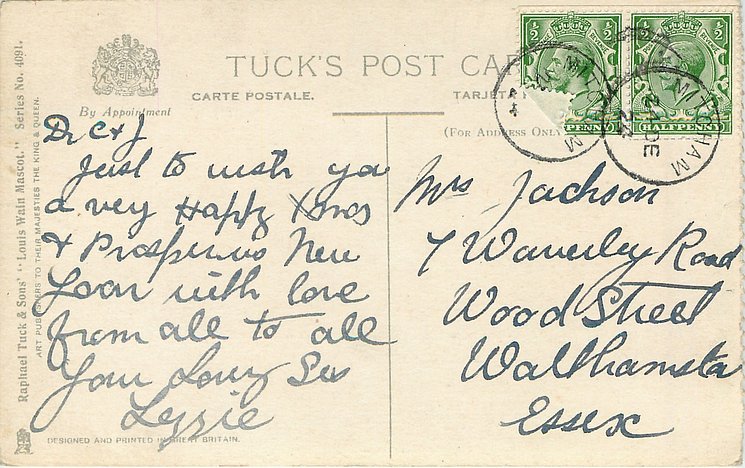 TUCK'S POST CAR
CARTE POSTALE.
TARJETA
(FOR ADDRESS ONLY
By Appointment
Raphael Tuck & Sons' "Louis Wain Mascot." Series No. 4091.
ART PUBLISHERS TO THEIR MAJESTIES THE KING & QUEEN.
½
½
½
½
PENNY
HALFPENNY
MITCHAM
24 DE
Dr C & J
Just to wish you
a very Happy Xmas
& Prosperous New
Year with love
from all to all
Your Loving Sis
Lizzie
Mrs Jackson
7 Waverley Road
Wood Street
Walthamsto
Essex
DESIGNED AND PRINTED IN GREAT BRITAIN.